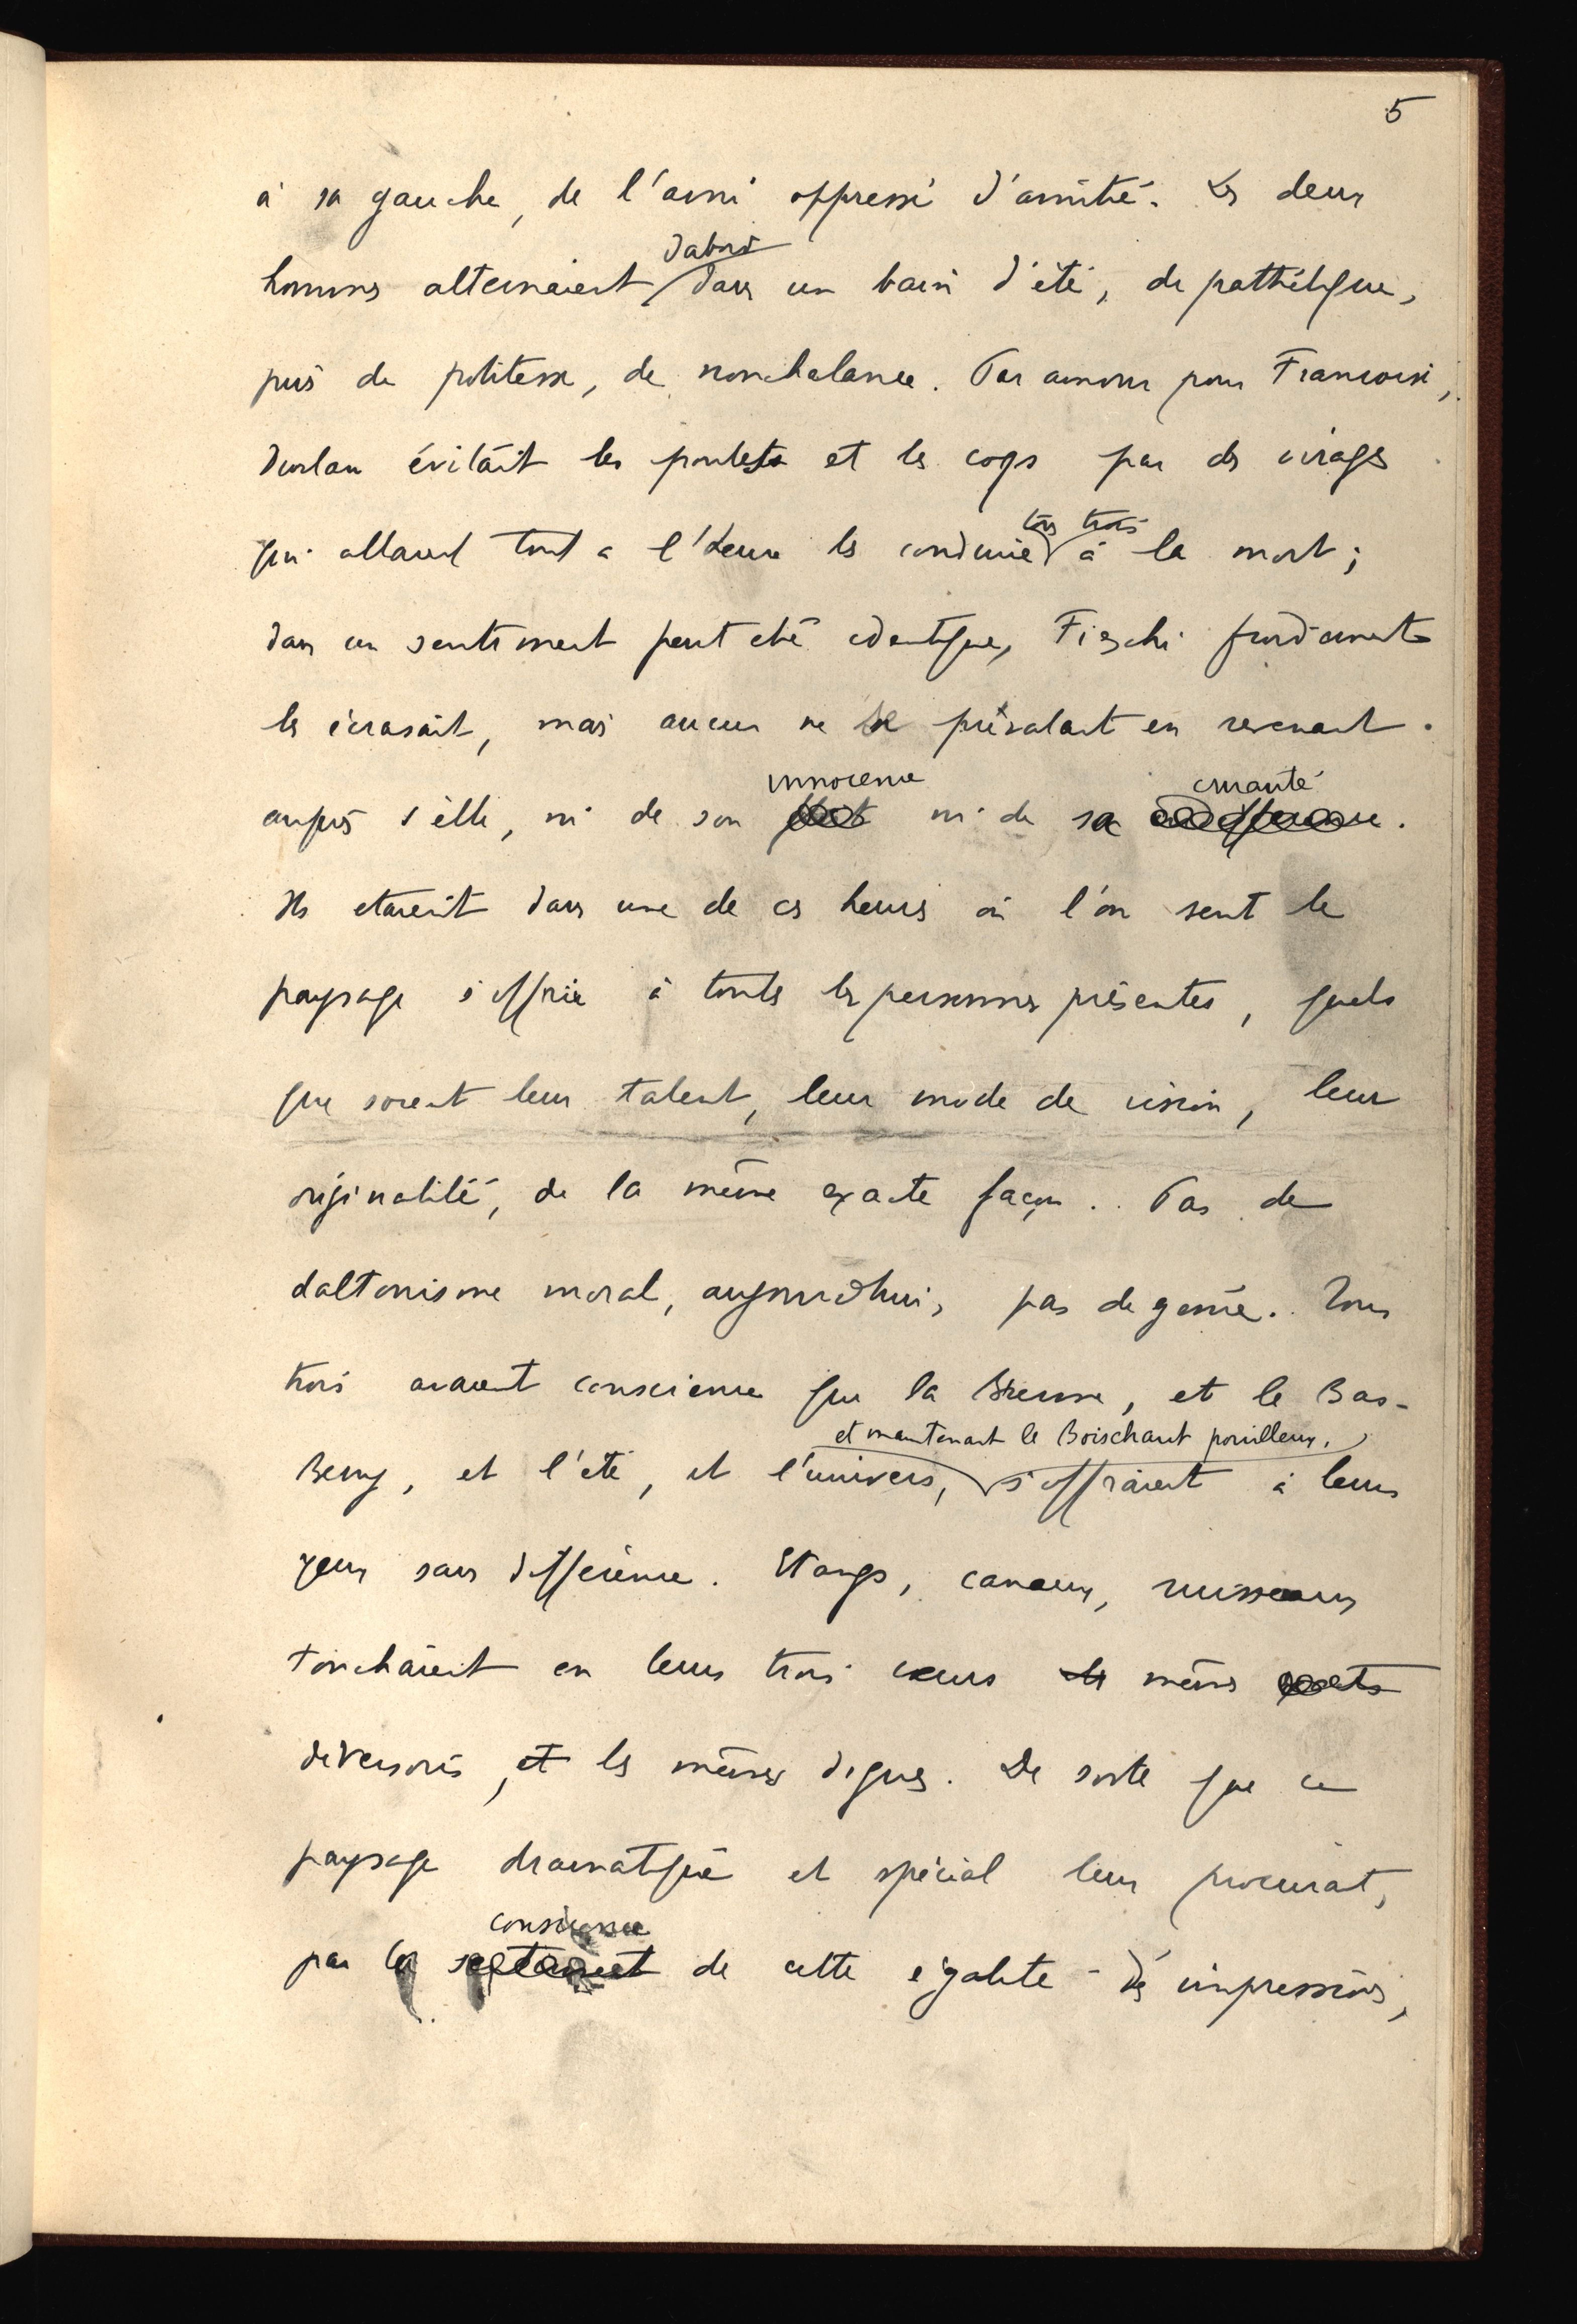 5
à sa gauche, de l'ami oppressé d'amitié. Les deux
d'abord
hommes alternaient dans un bain d'été, de pathétique,
puis de politesse, de nonchalance. Par amour pour Françoise,
évitait les poulets et les coqs par des virages
tous trois
qui allaient tout à l'heure les conduire à la mort;
dans un sentiment peut etre identique, Fieschi froidement
les écrasait, mais aucun ne se prévalait en revenant
innocence cruauté
auprès d'elle, ni de son ni de sa indifférence.
Ils etaient dans une de ces heures où l'on sent le
paysage s'offrir à toutes les personnes présentes, quels
que soient leur talent, leur mode de vision, leur
originalité, de la même exacte façon. Pas de
daltonisme moral, aujourd'hui, pas de génie. Tous
trois avaient conscience que la Brenne, et le Bas-
et maintenant le Boischaut pouilleux,
Berry, et l'été, et l'univers, s'offraient à leurs
yeux sans différence. Etangs, canaux, ruisseaux
touchaient en leurs trois cœurs les mêmes
déversoirs, et les mêmes digues. De sorte que ce
paysage dramatique et spécial leur procurait,
conscience
par la sentiment de cette égalité des impressions,